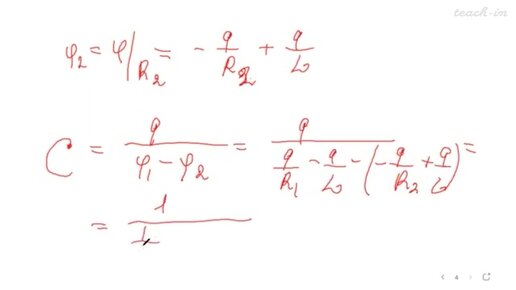 teach-in
φ₂ = φ/R₂ = - q/R₂ + q/L₀
C = q/(φ₁ - φ₂) = q/(q/R₁ - q/L₀ - (-q/R₂ + q/L)) =
= 1/1
4